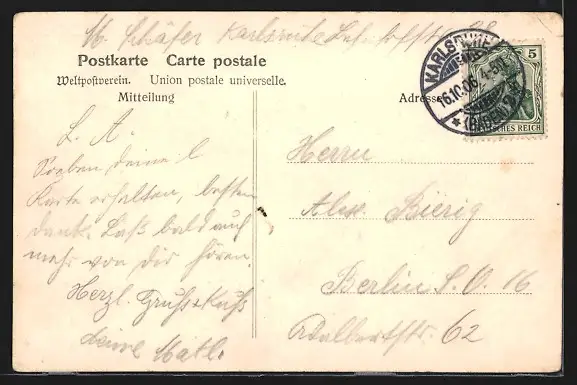 M. Schäfer Karlsruhe
Postkarte Carte postale
Weltpostverein. Union postale universelle.
Mitteilung
Adresse
KARLSRUHE
16.10.06. 4-5
(BADEN)
5
DEUTSCHES REICH
L. A.
Soeben deine l.
Karte erhalten, besten
Dank. Laß bald auch
mehr von dir hören.
Herzl. Gruß & Kuß
deine
Herrn
Alex. Bierig
Berlin S. O. 16
Adalbertstr. 62